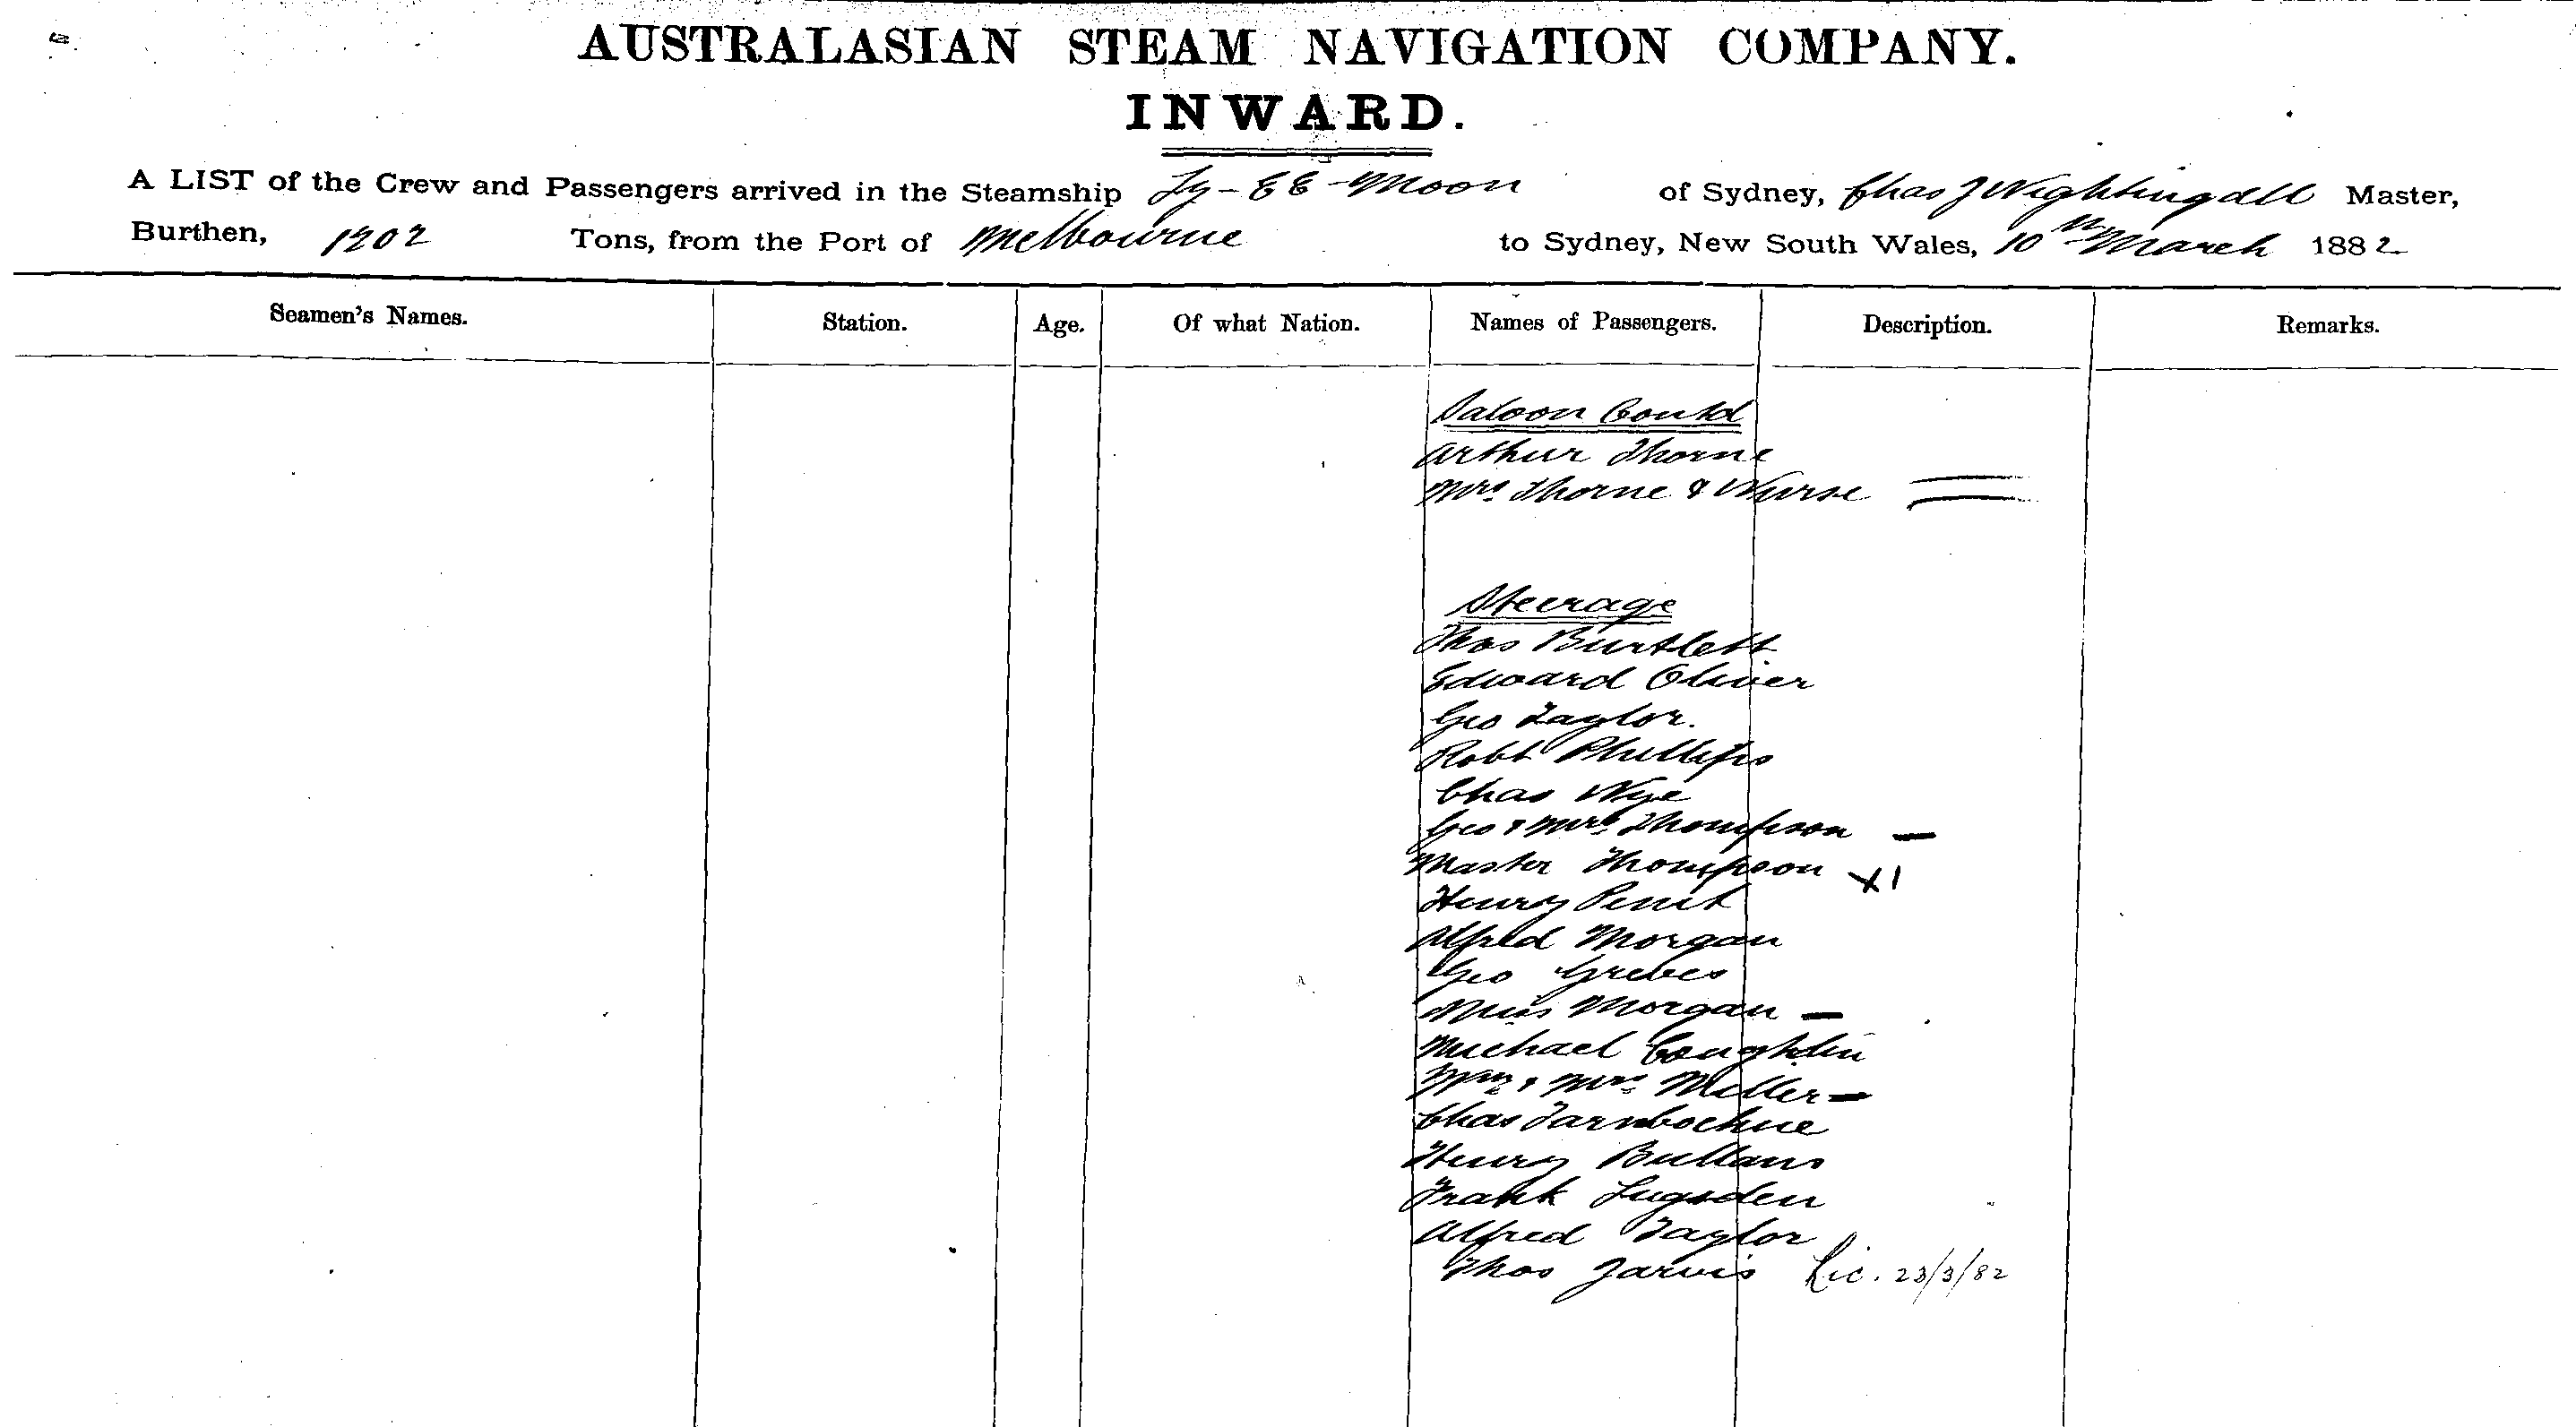 AUSTRALASIAN STEAM NAVIGATION COMPANY.
INWARD.
A LIST of the Crew and Passengers arrived in the Steamship Ly-EE-Moon of Sydney, Chas J Nightingall Master,
Burthen, 1202 Tons, from the Port of Melbourne to Sydney, New South Wales, 10th March 1882
Seamen's Names. Station. Age. Of what Nation. Names of Passengers. Description. Remarks.
Saloon Contd
Arthur Thorne
Mrs Thorne & Nurse
Steerage
Thos Burtlett
Edward Oliver
Geo Taylor.
Robt Phillips
Chas Nye
Geo & Mrs Thompson —
Master Thompson X1
Henry
Alfred Morgan
Geo Grebes
Miss Morgan —
Michael Coughlin
Wm & Mrs Miller —
Chas
Henry
Frank Lugsden
Alfred Taylor
Thos Jarvis Lic. 23/3/82